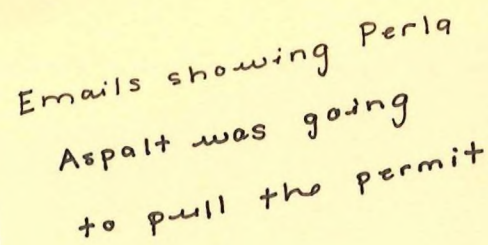 Emails showing Perla
Aspalt was going
to pull the permit